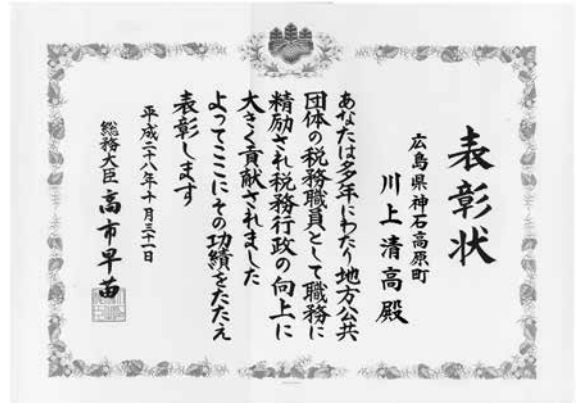 表彰状
広島県神石高原町
川上清高殿
あなたは多年にわたり地方公共
団体の税務職員として職務に
精励され税務行政の向上に
大きく貢献されました
よってここにその功績をたたえ
表彰します
平成二十八年十月三十一日
総務大臣 高市早苗